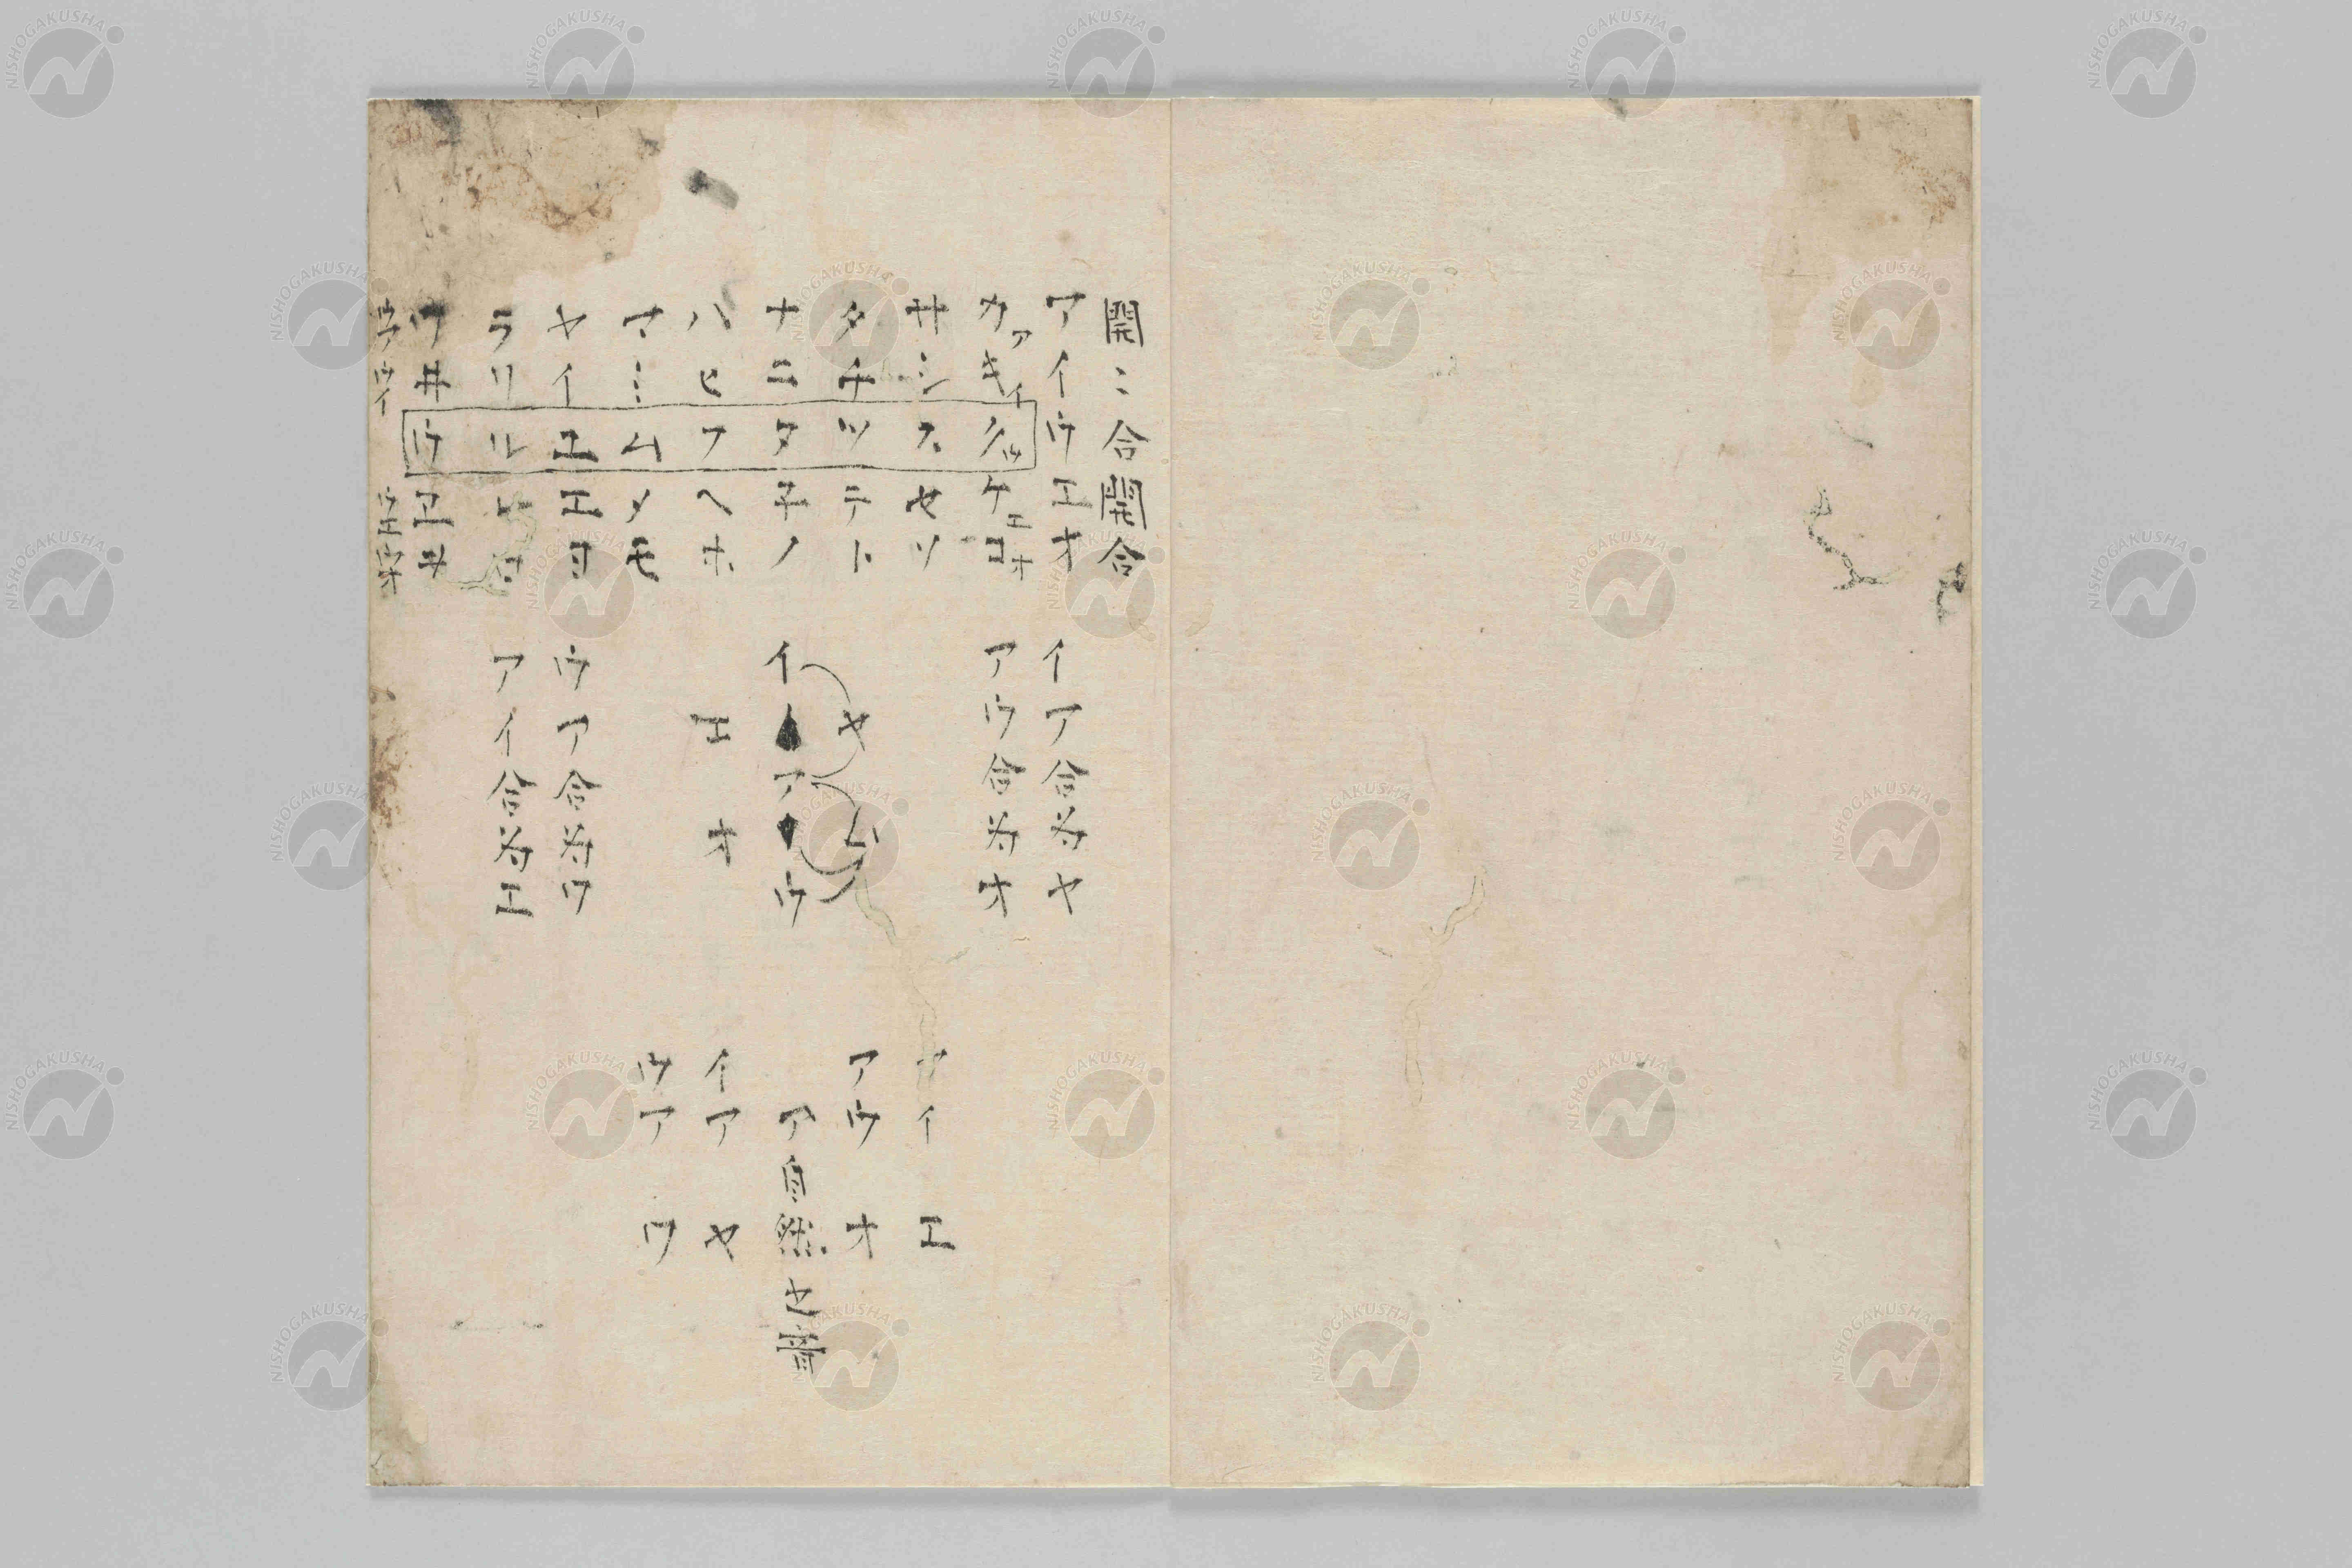 開ミ合開合
アイウエオ
カァキィクゥケェコォ
サシスセソ
タチツテト
ナニヌ子ノ
ハヒフヘホ
マミムメモ
ヤイユエヨ
ラリルレロ
ワヰウヱヲ
ウア ウイ ウエ ウオ
イア合為ヤ
アウ合為オ
ヤ
イ ア ウ
エ オ
ウア合為ワ
アイ合為エ
アイ エ
アウ オ
ア自然之音
イア ヤ
ウア ワ